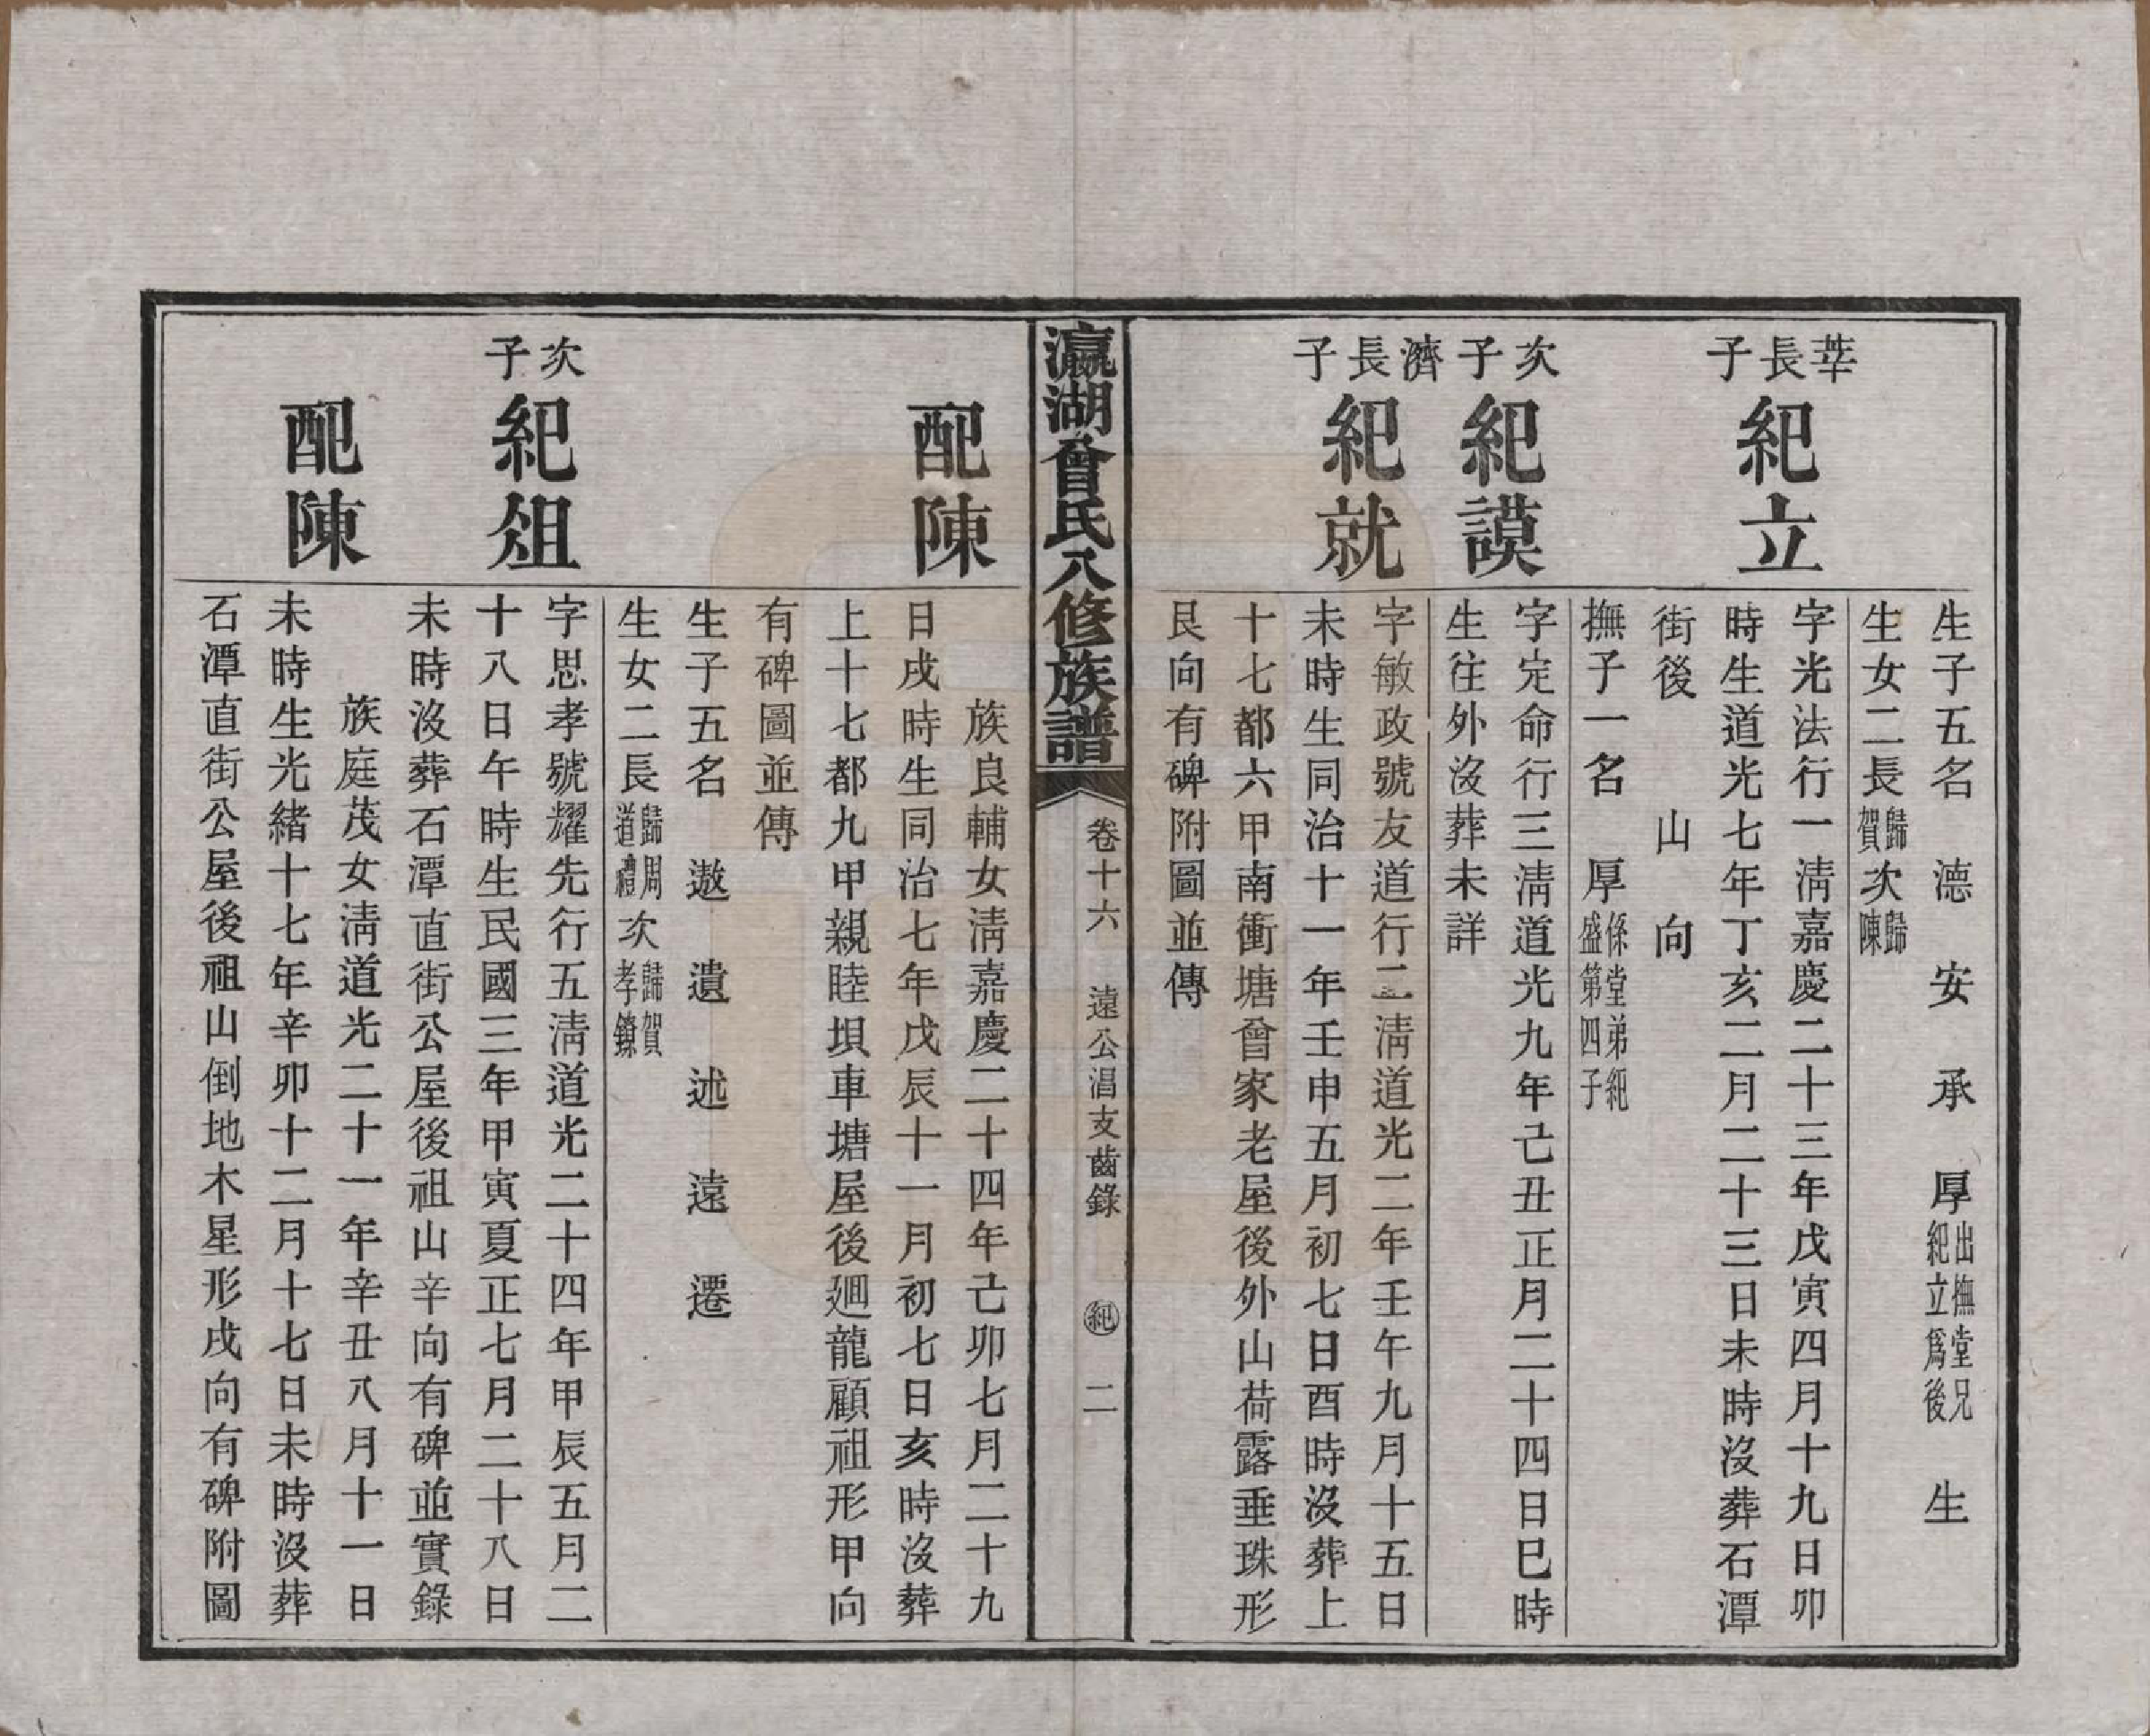 生子五名　德　安　承　厚出撫堂兄紀立爲後　生
生女二長歸賀次歸陳
莘長子
紀立
字光法行一淸嘉慶二十三年戊寅四月十九日卯
時生道光七年丁亥二月二十三日未時沒葬石潭
街後　　山　向
撫子一名　厚係堂弟紀盛第四子
次子
紀謨
字定命行三淸道光九年己丑正月二十四日巳時
生往外沒葬未詳
濟長子
紀就
字敏政號友道行二淸道光二年壬午九月十五日
未時生同治十一年壬申五月初七日酉時沒葬上
十七都六甲南衝塘曾家老屋後外山荷露垂珠形
艮向有碑附圖並傳
瀛湖曾氏八修族譜
卷十六　遠公淐支齒錄　紀　二
配陳
族良輔女淸嘉慶二十四年己卯七月二十九
日戌時生同治七年戊辰十一月初七日亥時沒葬
上十七都九甲親睦垻車塘屋後迴龍顧祖形甲向
有碑圖並傳
生子五名　遨　遺　述　遠　遷
生女二長歸周道禮次歸賀孝鐐
次子
紀俎
字思孝號耀先行五淸道光二十四年甲辰五月二
十八日午時生民國三年甲寅夏正七月二十八日
未時沒葬石潭直街公屋後祖山辛向有碑並實錄
配陳
族庭茂女淸道光二十一年辛丑八月十一日
未時生光緒十七年辛卯十二月十七日未時沒葬
石潭直街公屋後祖山倒地木星形戌向有碑附圖